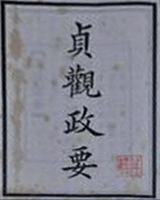 貞觀政要